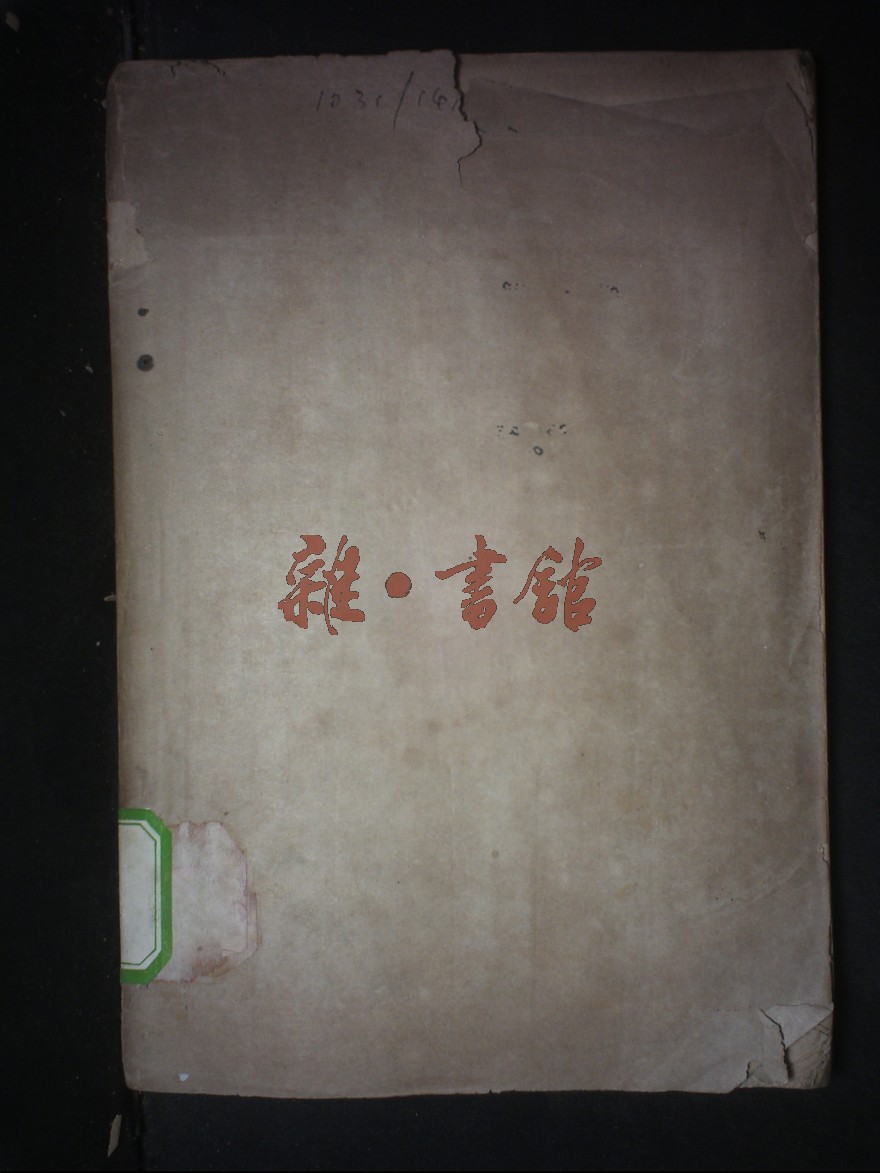 1031/141
雜·書館